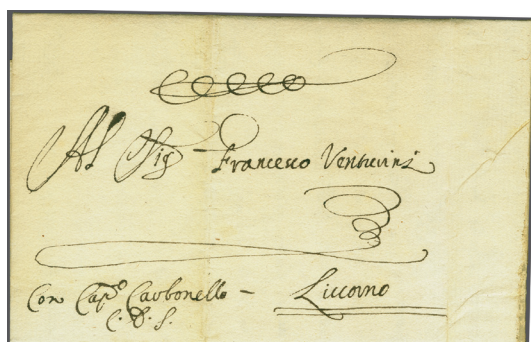 Al Sig.r Francesco Venturini
Con Cap.o Carbonello - Livorno
C. D. S.